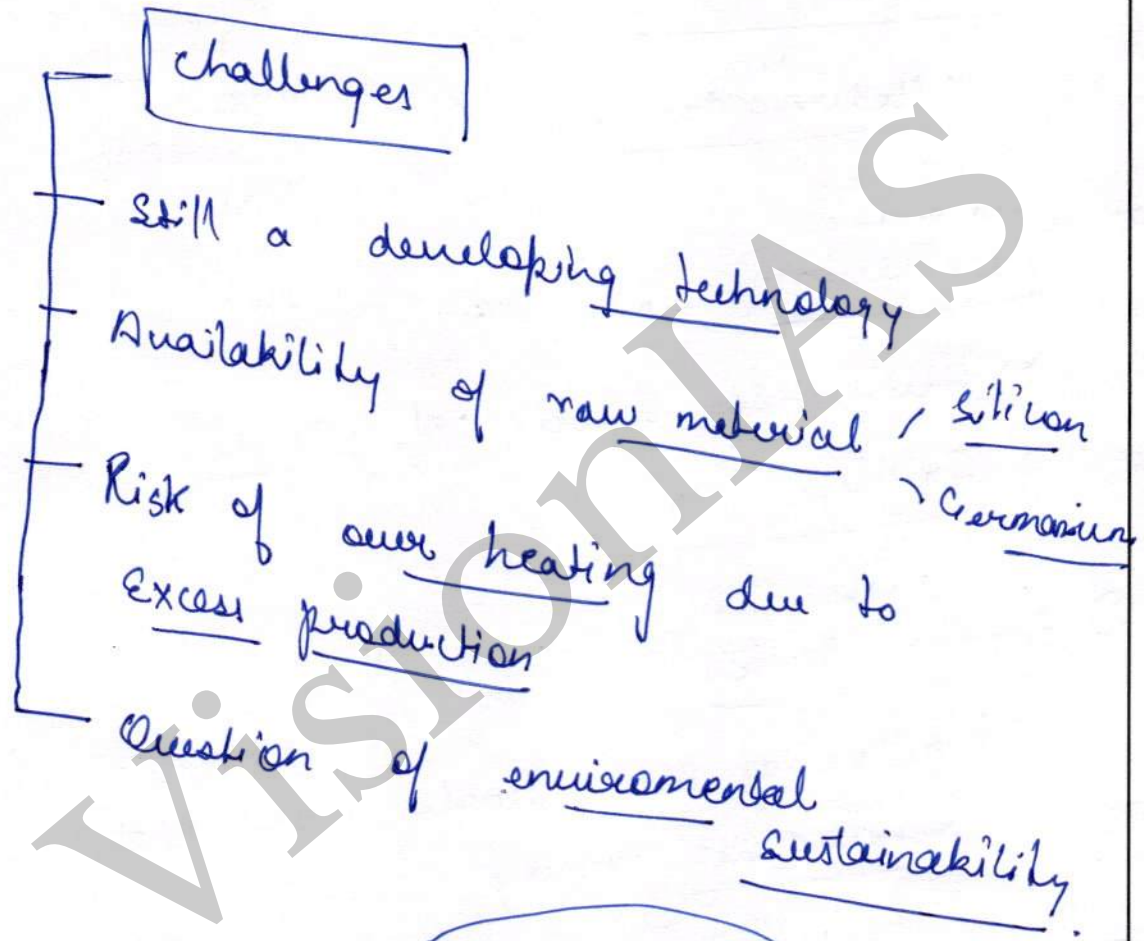 Challenges
Still a developing technology
Availability of raw material / Silicon
Germanium
Risk of over heating due to
Excess production
Question of enviromental
sustainability.
VisionIAS